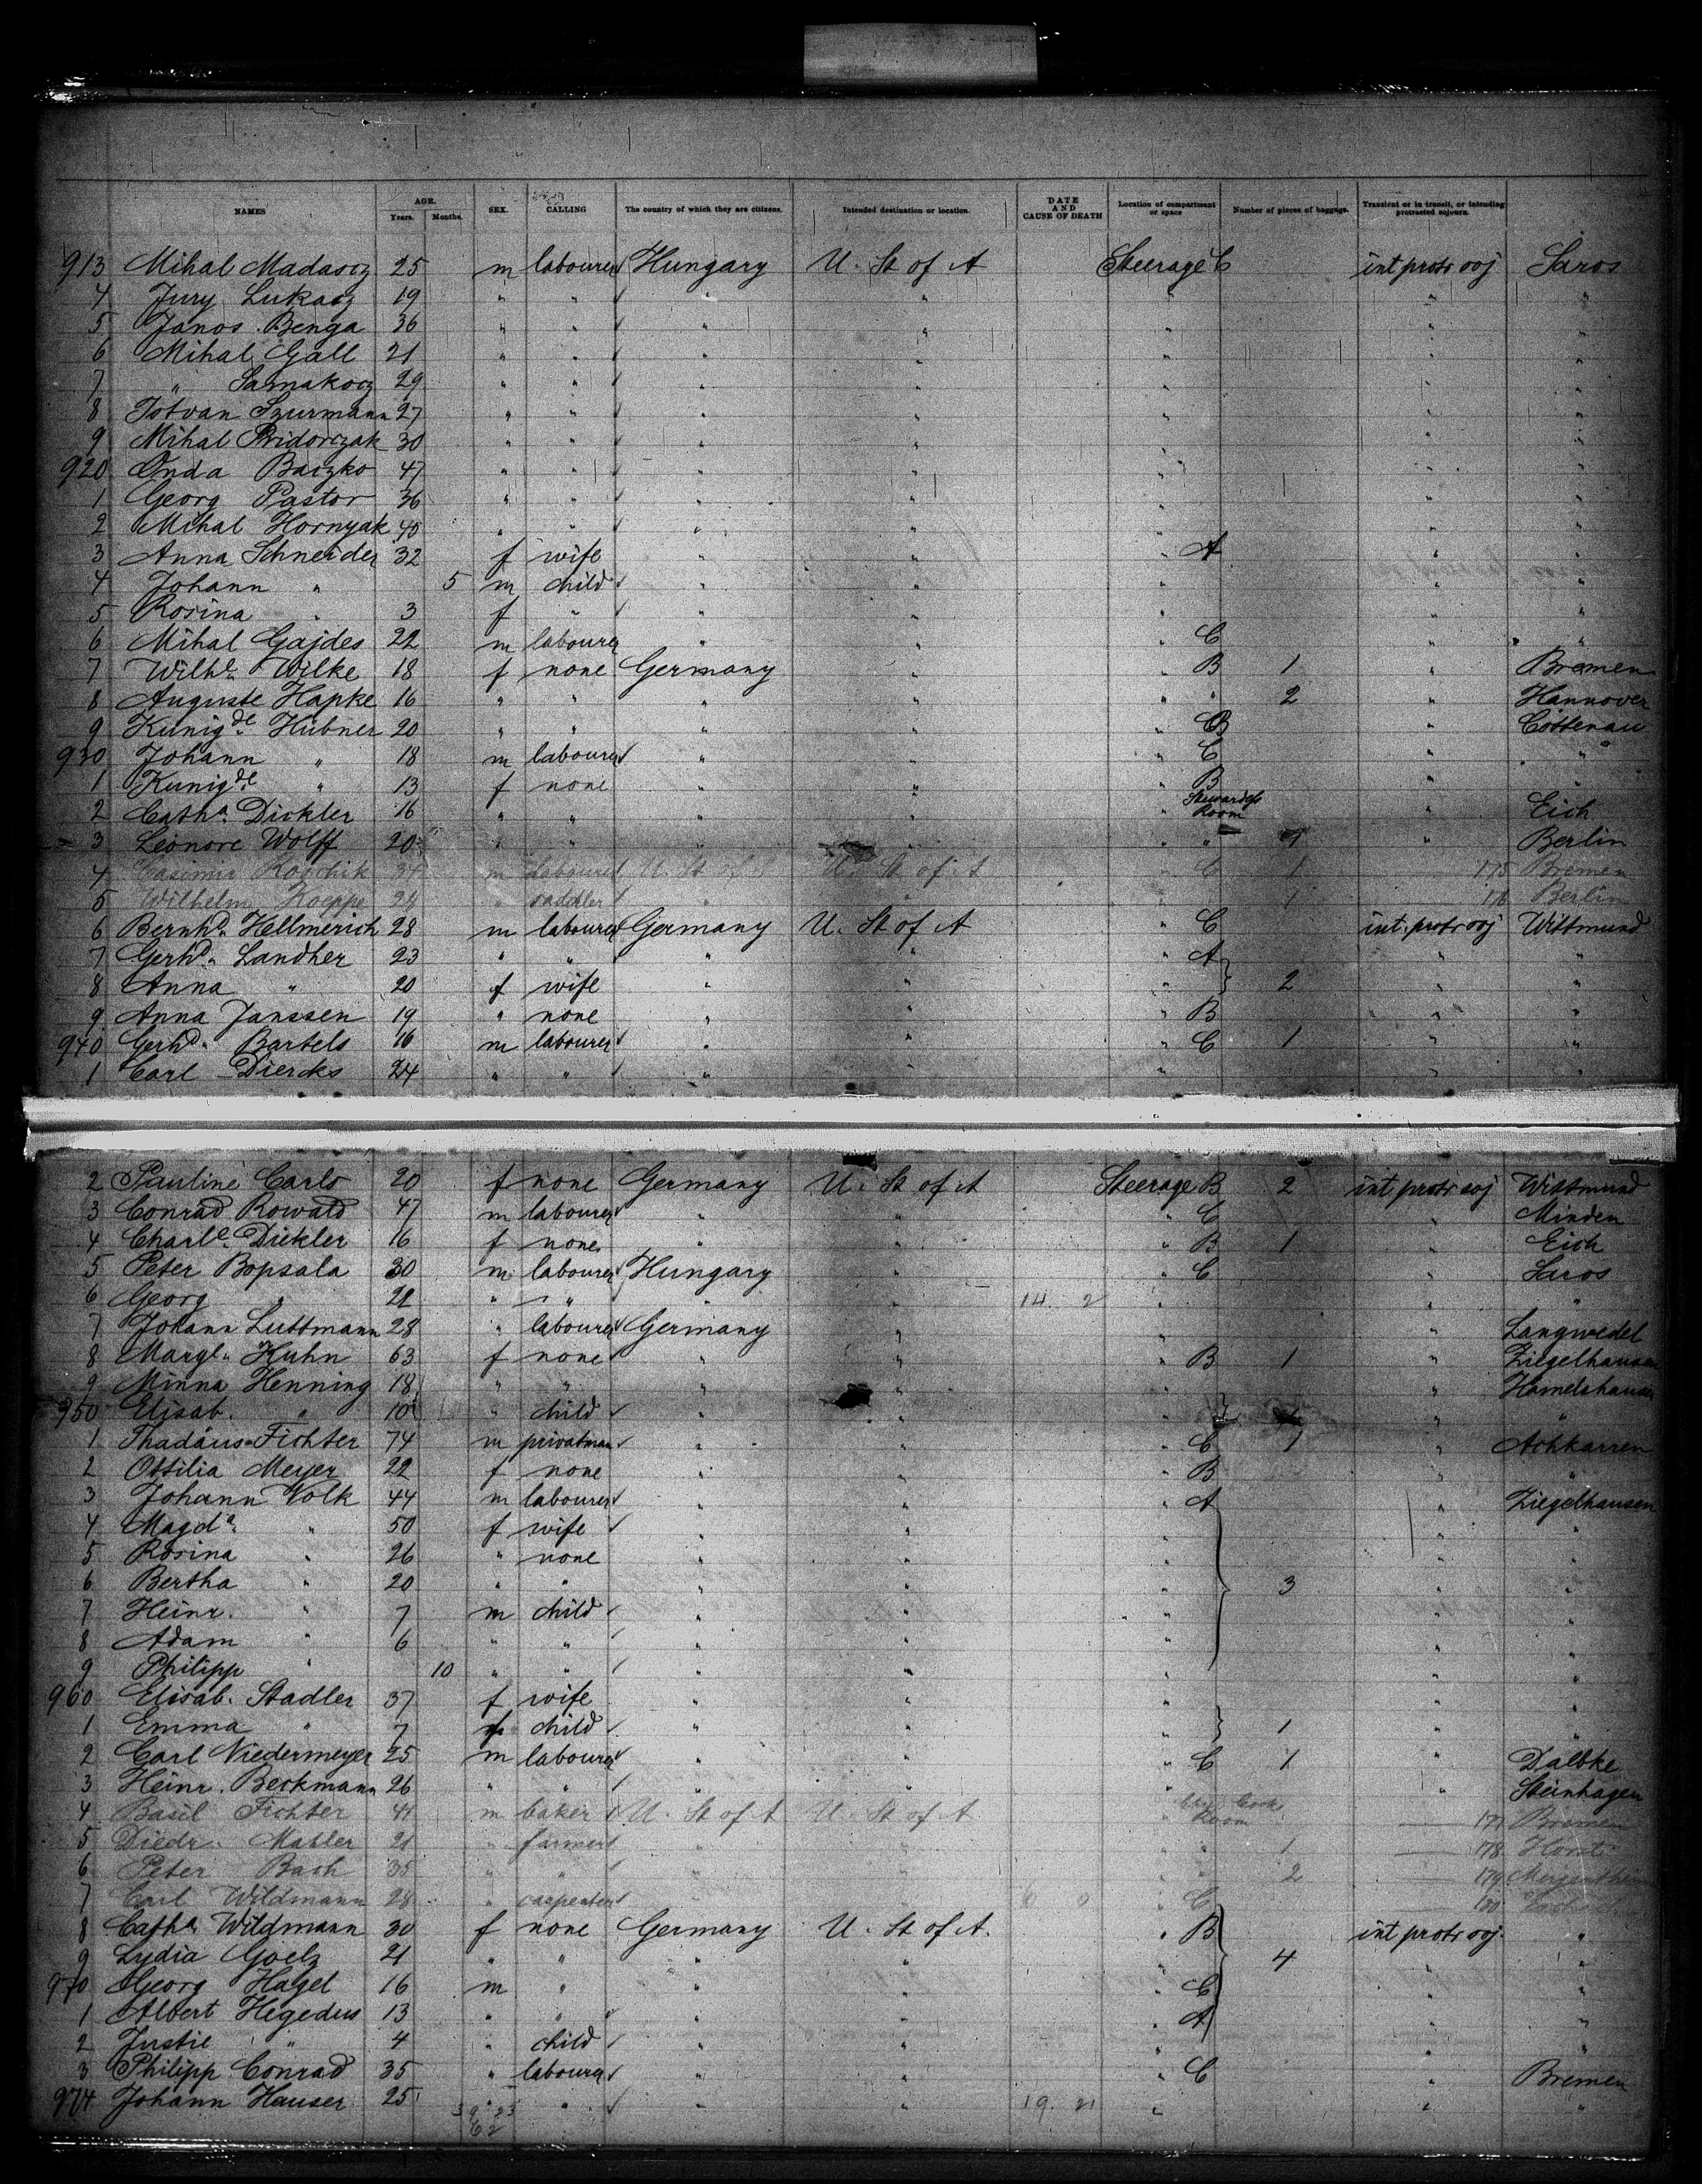 NAMES AGE. Years. Months. SEX. CALLING The country of which they are citizens. Intended destination or location. DATE AND CAUSE OF DEATH Location of compartment or space Number of pieces of baggage. Transient or in transit, or intending protracted sojourn.
913 Mihal Madascz 25 m labourer Hungary U. St of A Steerage C int protr soj Saros
4 Jury Lukacz 19 " " " " " " "
5 Janos Benga 36 " " " " " " "
6 Mihal Gall 21 " " " " " " "
7 " Samakocz 29 " " " " " " "
8 Istvan Szurmann 27 " " " " " " "
9 Mihal Bridorczak 30 " " " " " " "
920 Onda Baczko 47 " " " " " " "
1 Georg Pastor 36 " " " " " " "
2 Mihal Hornyak 45 " " " " " " "
3 Anna Schneider 32 f wife " " " A " "
4 Johann " 5 m child " " " " "
5 Rosina " 3 f " " " " " "
6 Mihal Gajdes 22 m labourer " " " C " "
7 Wilhe. Wilke 18 f none Germany " " B 1 " Bremen
8 Auguste Hapke 16 " " " " " " 2 " Hannover
9 Kunigde Hübner 20 " " " " " B " Cottenau
930 Johann " 18 m labourer " " " C " "
1 Kunigde " 13 f none " " " B " "
2 Catha. Dickler 16 " " " " " Stewardess Room " Eich
3 Leonore Wolff 20 " " " " " " 1 " Berlin
4 Casimir 34 m labourer U. St of A U. St of A C 1 175 Bremen
5 Wilhelm Koeppe 24 " saddler " " 1 176 Berlin
6 Bernhd. Hellmerich 28 m labourer Germany U. St of A " C int. protr soj Wittmund
7 Gerhd. Landher 23 " " " " " A " "
8 Anna " 20 f wife " " " 2 " "
9 Anna Janssen 19 " none " " " B " "
940 Gerhd. Bartels 16 m labourer " " " C 1 " "
1 Carl Diercks 24 " " " " " " "
2 Pauline Carls 20 f none Germany U. St of A Steerage B 2 int protr soj Wittmund
3 Conrad Rowald 47 m labourer " " " C " Minden
4 Charle. Dickler 16 f none " " " B 1 " Eich
5 Peter Bopsala 30 m labourer Hungary " " C " Saros
6 Georg " 22 " " " " 14 2 " " "
7 Johann Luttmann 28 " labourer Germany " " " Langwedel
8 Margt. Kuhn 63 f none " " " B 1 " Ziegelhausen
9 Minna Henning 18 " " " " " " Hamelshausen
950 Elisab. " 10 " child " " " 1 " "
1 Thadäus Fichter 74 m privatman " " " C 1 " Achkarren
2 Ottilia Meyer 22 f none " " " B " "
3 Johann Volk 44 m labourer " " " A " Ziegelhausen
4 Magda. " 50 f wife " " " " "
5 Rosina " 26 " none " " " " "
6 Bertha " 20 " " " " " 3 " "
7 Heinr. " 7 m child " " " " "
8 Adam " 6 " " " " " " "
9 Philipp " 10 " " " " " " "
960 Elisab. Stadler 37 f wife " " " " "
1 Emma " 7 f child " " " 1 " "
2 Carl Niedermeyer 25 m labourer " " " C 1 " Dalbke
3 Heinr. Beckmann 26 " " " " " " Steinhagen
4 Basil Fichter 41 m baker U. St of A U. St of A Room 177 Bremen
5 Diedr. Mahler 21 " farmer " 1 178 Horst
6 Peter Bach 35 " " " " 2 179 Mergentheim
7 Carl Wildmann 28 " carpenter C 180
8 Catha. Wildmann 30 f none Germany U. St of A. " B int protr soj. "
9 Lydia Goelz 21 " " " " " 4 " "
970 Georg Hagel 16 m " " " " C " "
1 Albert Hegedus 13 " " " " " A " "
2 Justie " 4 " child " " " " "
3 Philipp Conrad 35 " labourer " " " C " Bremen
974 Johann Hauser 25 " " " " 19. 21 " " "